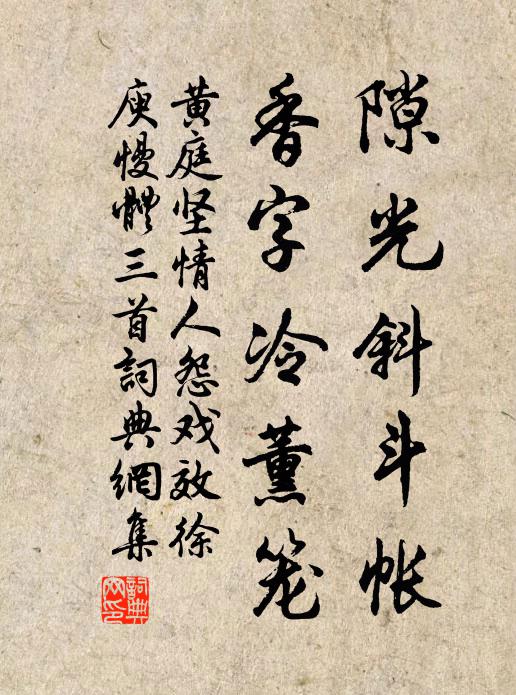 隙光斜斗帐
香字冷薰笼
黄庭坚情人怨戏效徐
庾慢體三首詞典網集
詞典
网印